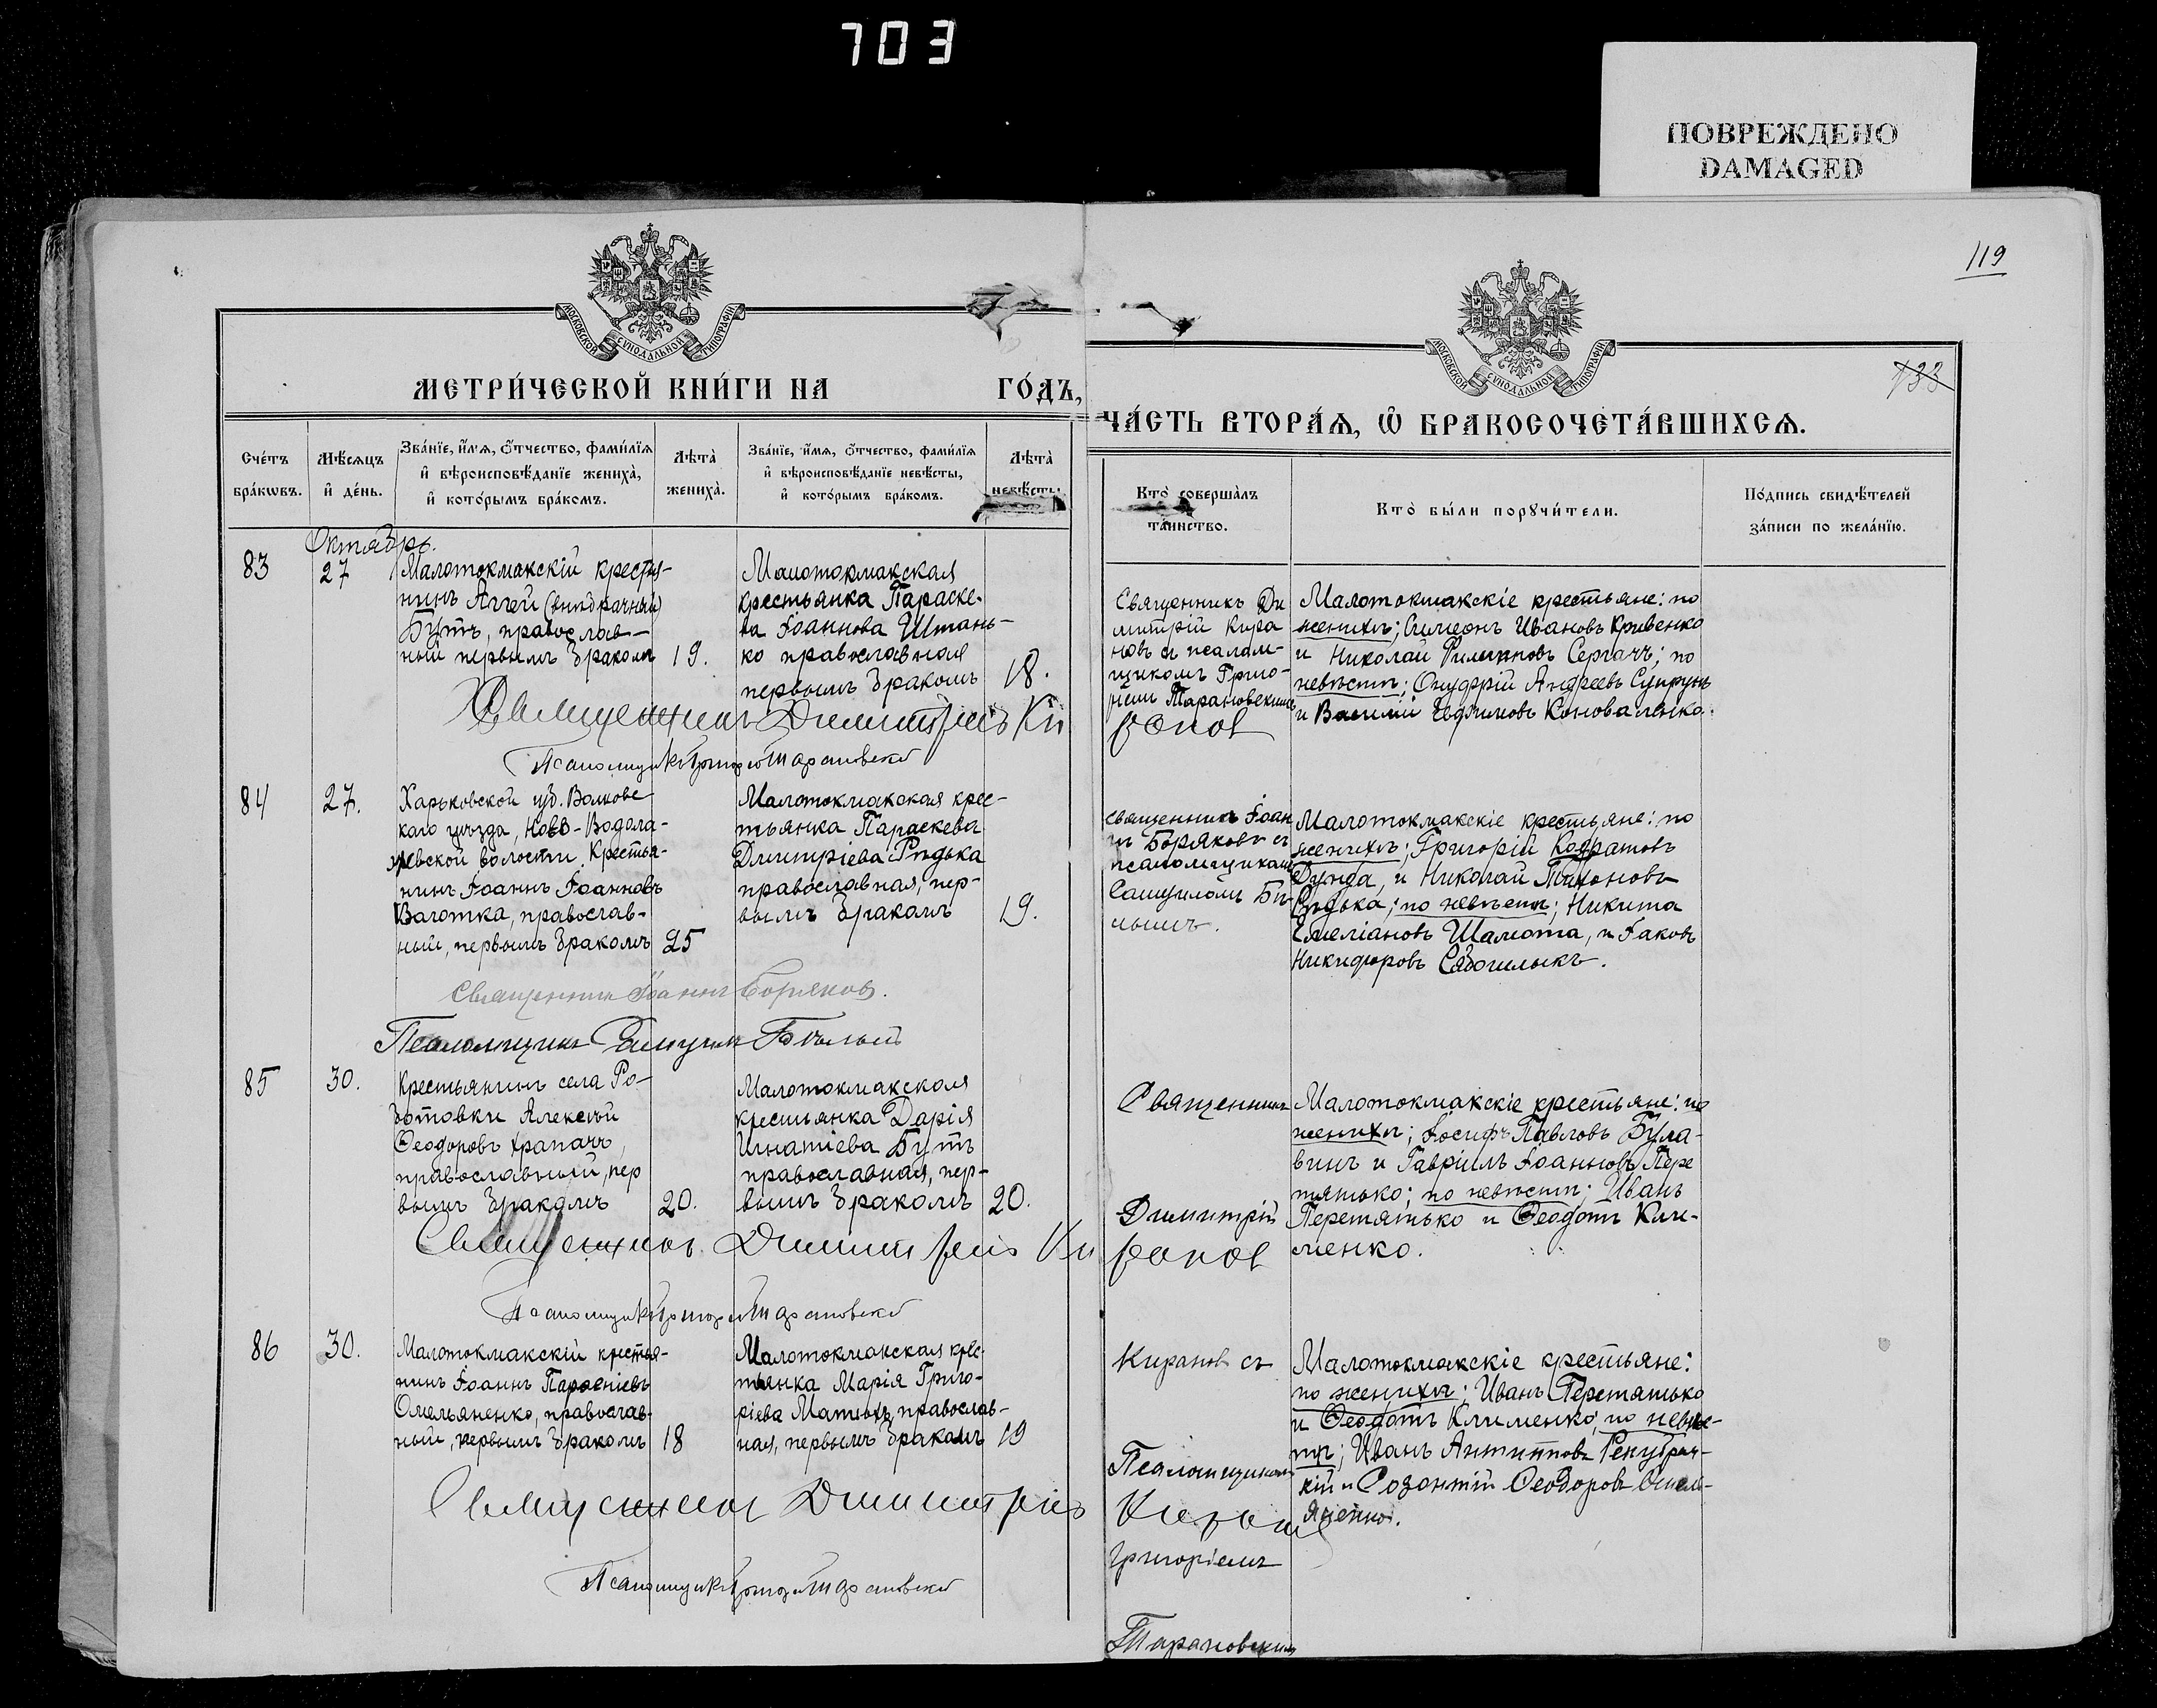 703
ПОВРЕЖДЕНО
DAMAGED
119
МОСКОВСКОЙ СѴНОДАЛЬНОЙ ТИПОГРАФІИ
МОСКОВСКОЙ СѴНОДАЛЬНОЙ ТИПОГРАФІИ
733
МЕТРИ́ЧЕСКОЙ КНИ́ГИ НА ГО́ДЪ,
ЧА́СТЬ ВТОРА́Ѧ, Ѽ БРАКОСОЧЕТА́ВШИХСѦ.
Сче́тъ
бра́кѡвъ.
Мѣ́сяцъ
и҆ де́нь.
Зва́нїе, и҆́мѧ, ѻ҆́тчество, фами́лїѧ
и҆ вѣроисповѣ́данїе жениха̀,
и҆ кото́рымъ бра́комъ.
Лѣта̀
жениха̀.
Зва́нїе, и҆́мѧ, ѻ҆́тчество, фами́лїѧ
и҆ вѣроисповѣ́данїе невѣ́сты,
и҆ кото́рымъ бра́комъ.
Лѣта̀
невѣ́сты
Кто̀ соверша́лъ
та́инство.
Кто̀ бы́ли порꙋчи́тели.
По́дпись свидѣ́телей
за́писи по жела́нїю.
Октябрь.
83
27
Малотокмакскій крестья-
нинъ Аггей (внѣбрачный)
Бутъ, православ-
ный первымъ бракомъ
19.
Малотокмакская
крестьянка Параске-
ва Іоаннова Штань-
ко православная
первымъ бракомъ
18.
Священникъ Ди
митрій Кира
новъ съ псалом-
щикомъ Григо-
ріем Тарановскимъ
Малотокмакскіе крестьяне: по
женихѣ; Симеонъ Ивановъ Кривенко
и Николай Филипповъ Сергачъ; по
невѣстѣ; Онуфрій Андреевъ Супрунъ
и Василій Ефимовъ Коноваленко.
Священникъ Димитрій Киранов
Псаломщикъ Григорій Тарановскій
84
27.
Харьковской губ. Валковс
каго уѣзда, Ново-Водола-
жевской волости, Крестья-
нинъ Іоаннъ Іоанновъ
Валотка, православ-
ный, первымъ бракомъ
25
Малотокмакская крес-
тьянка Параскева
Димитріева Рѣдька
православная, пер-
вымъ бракомъ
19.
Священникъ Іоан
нъ Боряковъ съ
псаломщикомъ
Самуиломъ Бѣ-
лымъ.
Малотокмакскіе крестьяне: по
женихѣ; Григорій Кодратовъ
Дунда, и Николай Тихоновъ
Рѣдька; по невѣстѣ; Никита
Емеліановъ Шамота, и Іаковъ
Никифоровъ
Священникъ Іоаннъ Боряковъ.
Псаломщикъ Самуилъ Бѣлый
85
30.
Крестьянинъ села Ро-
ботовки Алексѣй
Ѳеодоровъ Храпачъ,
православный, пер
вымъ бракомъ
20.
Малотокмакская
крестьянка Дарія
Игнатіева Бутъ
православная, пер-
вымъ бракомъ
20.
Священникъ
Димитрій
Малотокмакскіе крестьяне: по
женихѣ; Іосифъ Павловъ Була-
винъ и Гавріилъ Іоанновъ Пере
тятько; по невѣстѣ; Иванъ
Перетятько и Ѳеодотъ Кли-
менко.
Священникъ Димитрій Киранов
Псаломщикъ Григорій Тарановскій
86
30.
Малотокмакскій крестья-
нинъ Іоаннъ Парѳеніевъ
Омельяненко, православ-
ный, первымъ бракомъ
18
Малотокмакская крес-
тьянка Марія Григо-
ріева Матюхъ, православ-
ная, первымъ бракомъ
19
Киранов съ
Псаломщикомъ
Григоріемъ
Тарановскимъ
Малотокмакскіе крестьяне:
по женихѣ; Иванъ Перетятько
и Ѳеодотъ Клименко, по невѣс-
тѣ; Иванъ Антиповъ
кій и Созонтій Ѳеодоровъ Омель-
яненко.
Священникъ Димитрій Киранов
Псаломщикъ Григорій Тарановскій